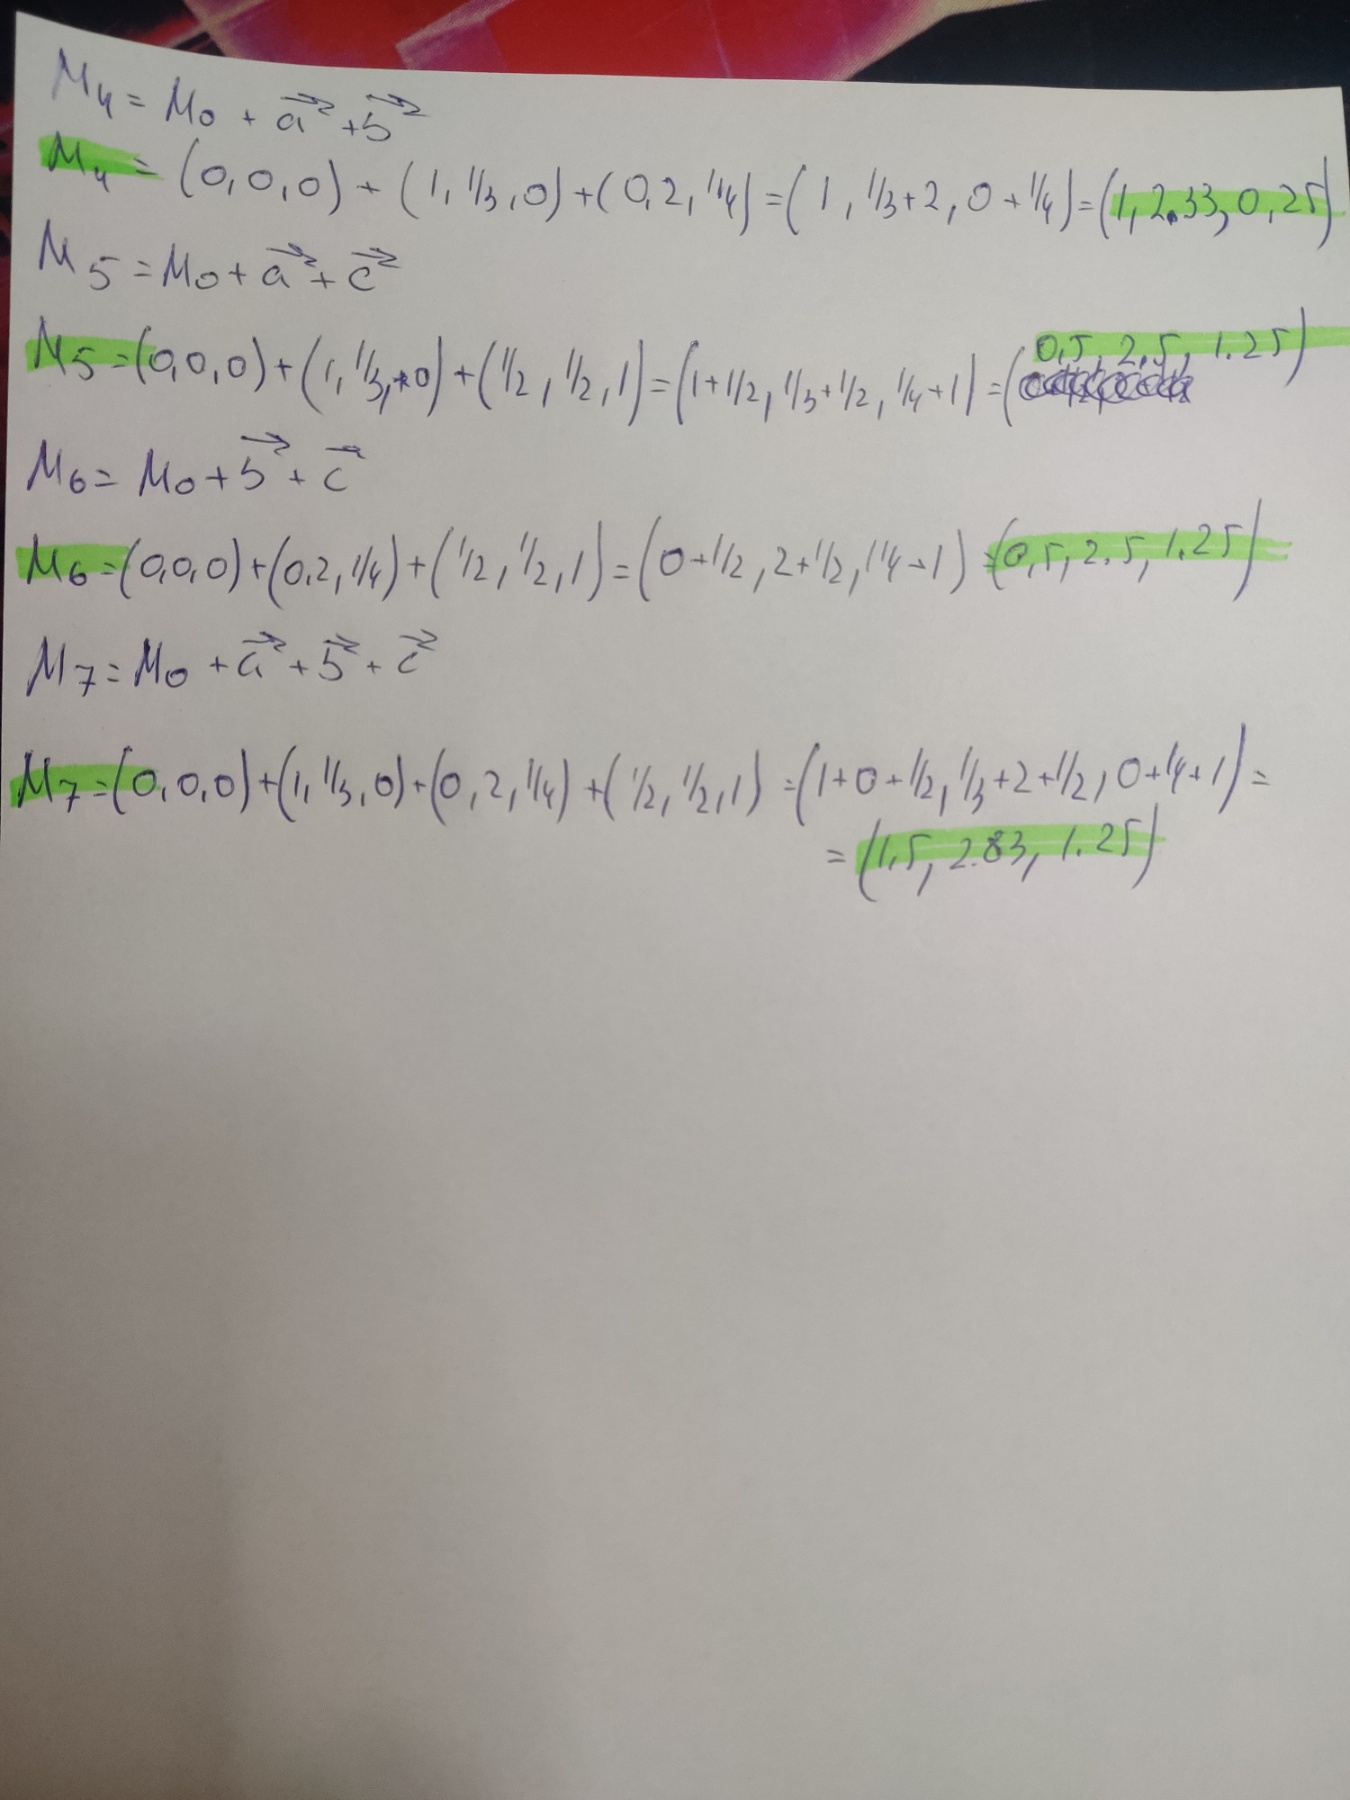 M₄ = M₀ + a⃗ + b⃗
M₄ = (0,0,0) + (1, 1/3, 0) + (0,2, 1/4) = (1, 1/3+2, 0+1/4) = (1, 2.33, 0,25)
M₅ = M₀ + a⃗ + c⃗
M₅ = (0,0,0) + (1, 1/3, 0) + (1/2, 1/2, 1) = (1+1/2, 1/3+1/2, 1/4+1) = (0,5, 2,5, 1.25)
M₆ = M₀ + b⃗ + c⃗
M₆ = (0,0,0) + (0,2, 1/4) + (1/2, 1/2, 1) = (0+1/2, 2+1/2, 1/4+1) = (0,5, 2.5, 1.25)
M₇ = M₀ + a⃗ + b⃗ + c⃗
M₇ = (0,0,0) + (1, 1/3, 0) + (0, 2, 1/4) + (1/2, 1/2, 1) = (1+0+1/2, 1/3+2+1/2, 0+1/4+1) =
= (1.5, 2.83, 1.25)